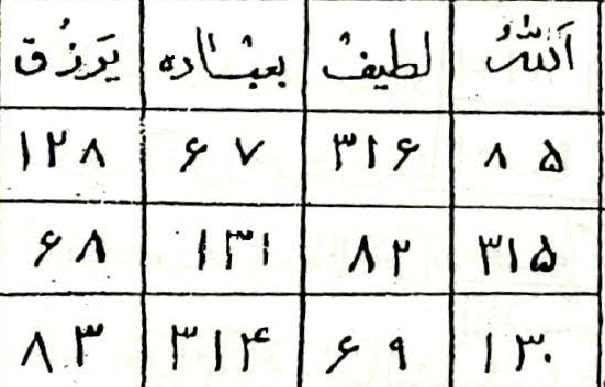 اَللّٰهُ لطیفٌ بعبٰاده یَرزُق
۸۵ ۳۱۶ ۶۷ ۱۲۸
۳۱۵ ۸۲ ۱۳۱ ۶۸
۱۳۰ ۶۹ ۳۱۴ ۸۳